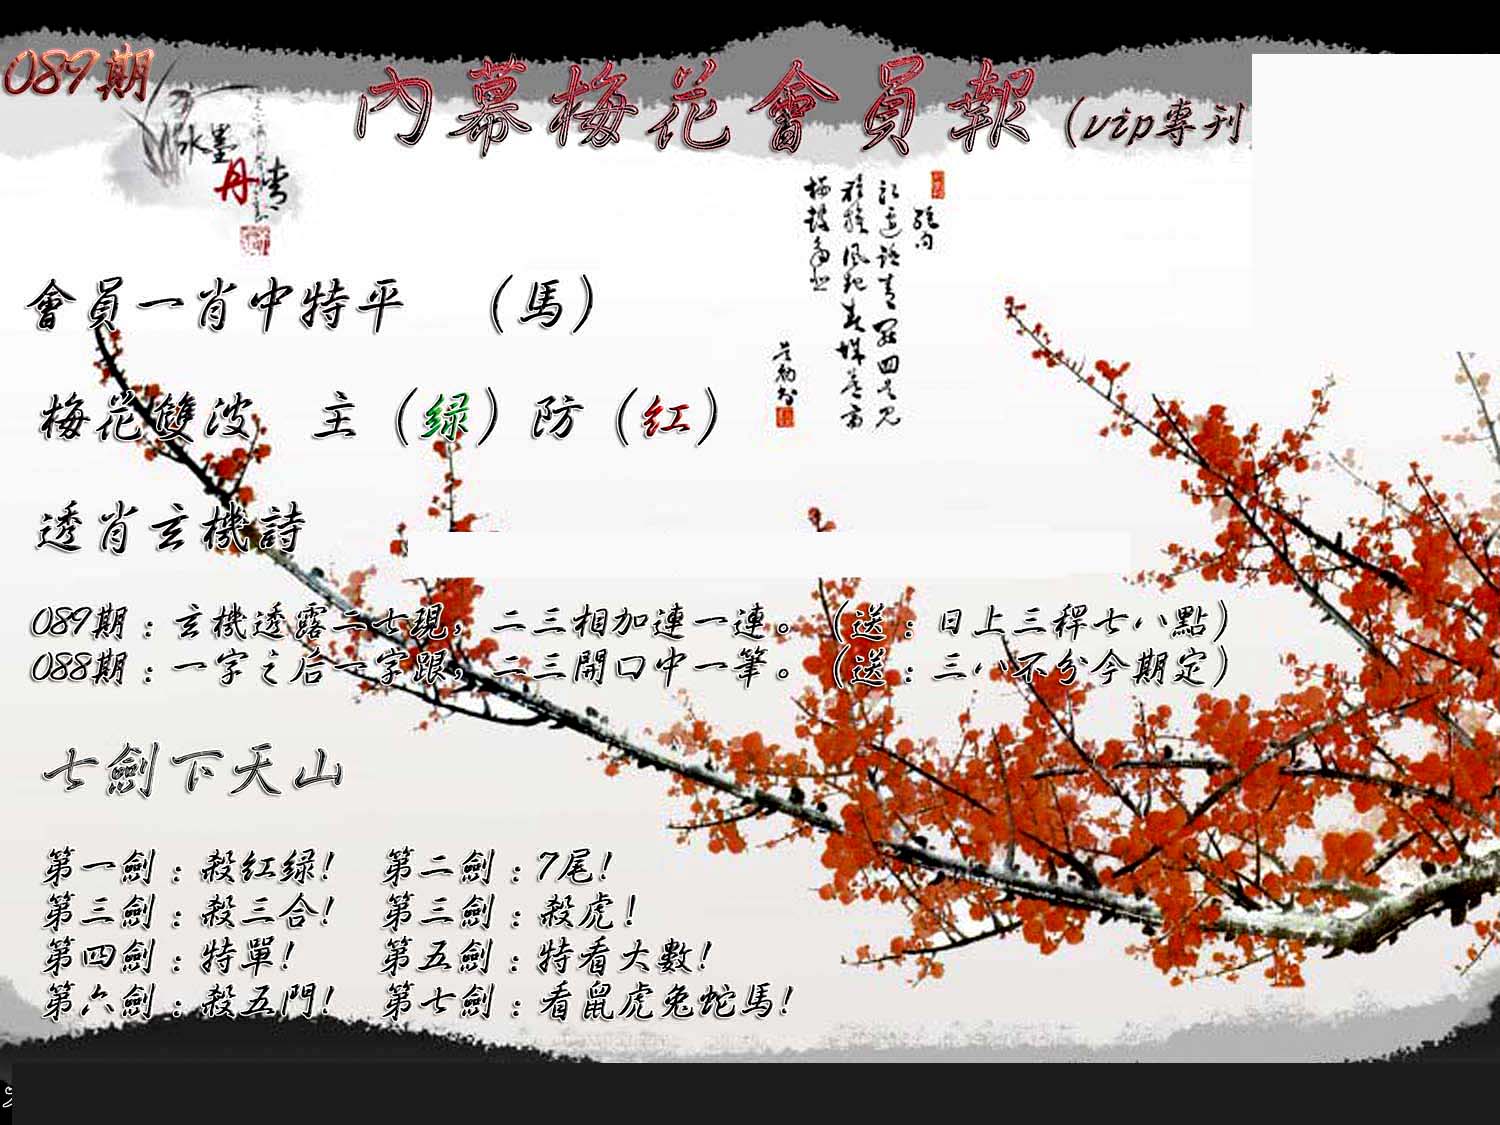 089期
內幕梅花會員報(vip專刊
水墨
丹青
絕句
會員一肖中特平 (馬)
梅花雙波 主(绿)防(红)
透肖玄機詩
089期：玄機透露二七現，二三相加連一連。(送：日上三稈七八點)
088期：一字之后一字跟，二三開口中一筆。(送：三八不兮今期定)
七劍下天山
第一劍：殺红绿! 第二劍：7尾!
第三劍：殺三合! 第三劍：殺虎!
第四劍：特單! 第五劍：特看大數!
第六劍：殺五門! 第七劍：看鼠虎兔蛇馬!